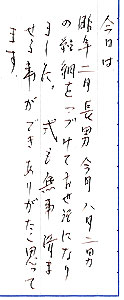 今日は
昨年二月長男今月八月二男
の結納をつづけてお世話になり
ました。式も無事済ま
せる事ができありがたく思って
ます